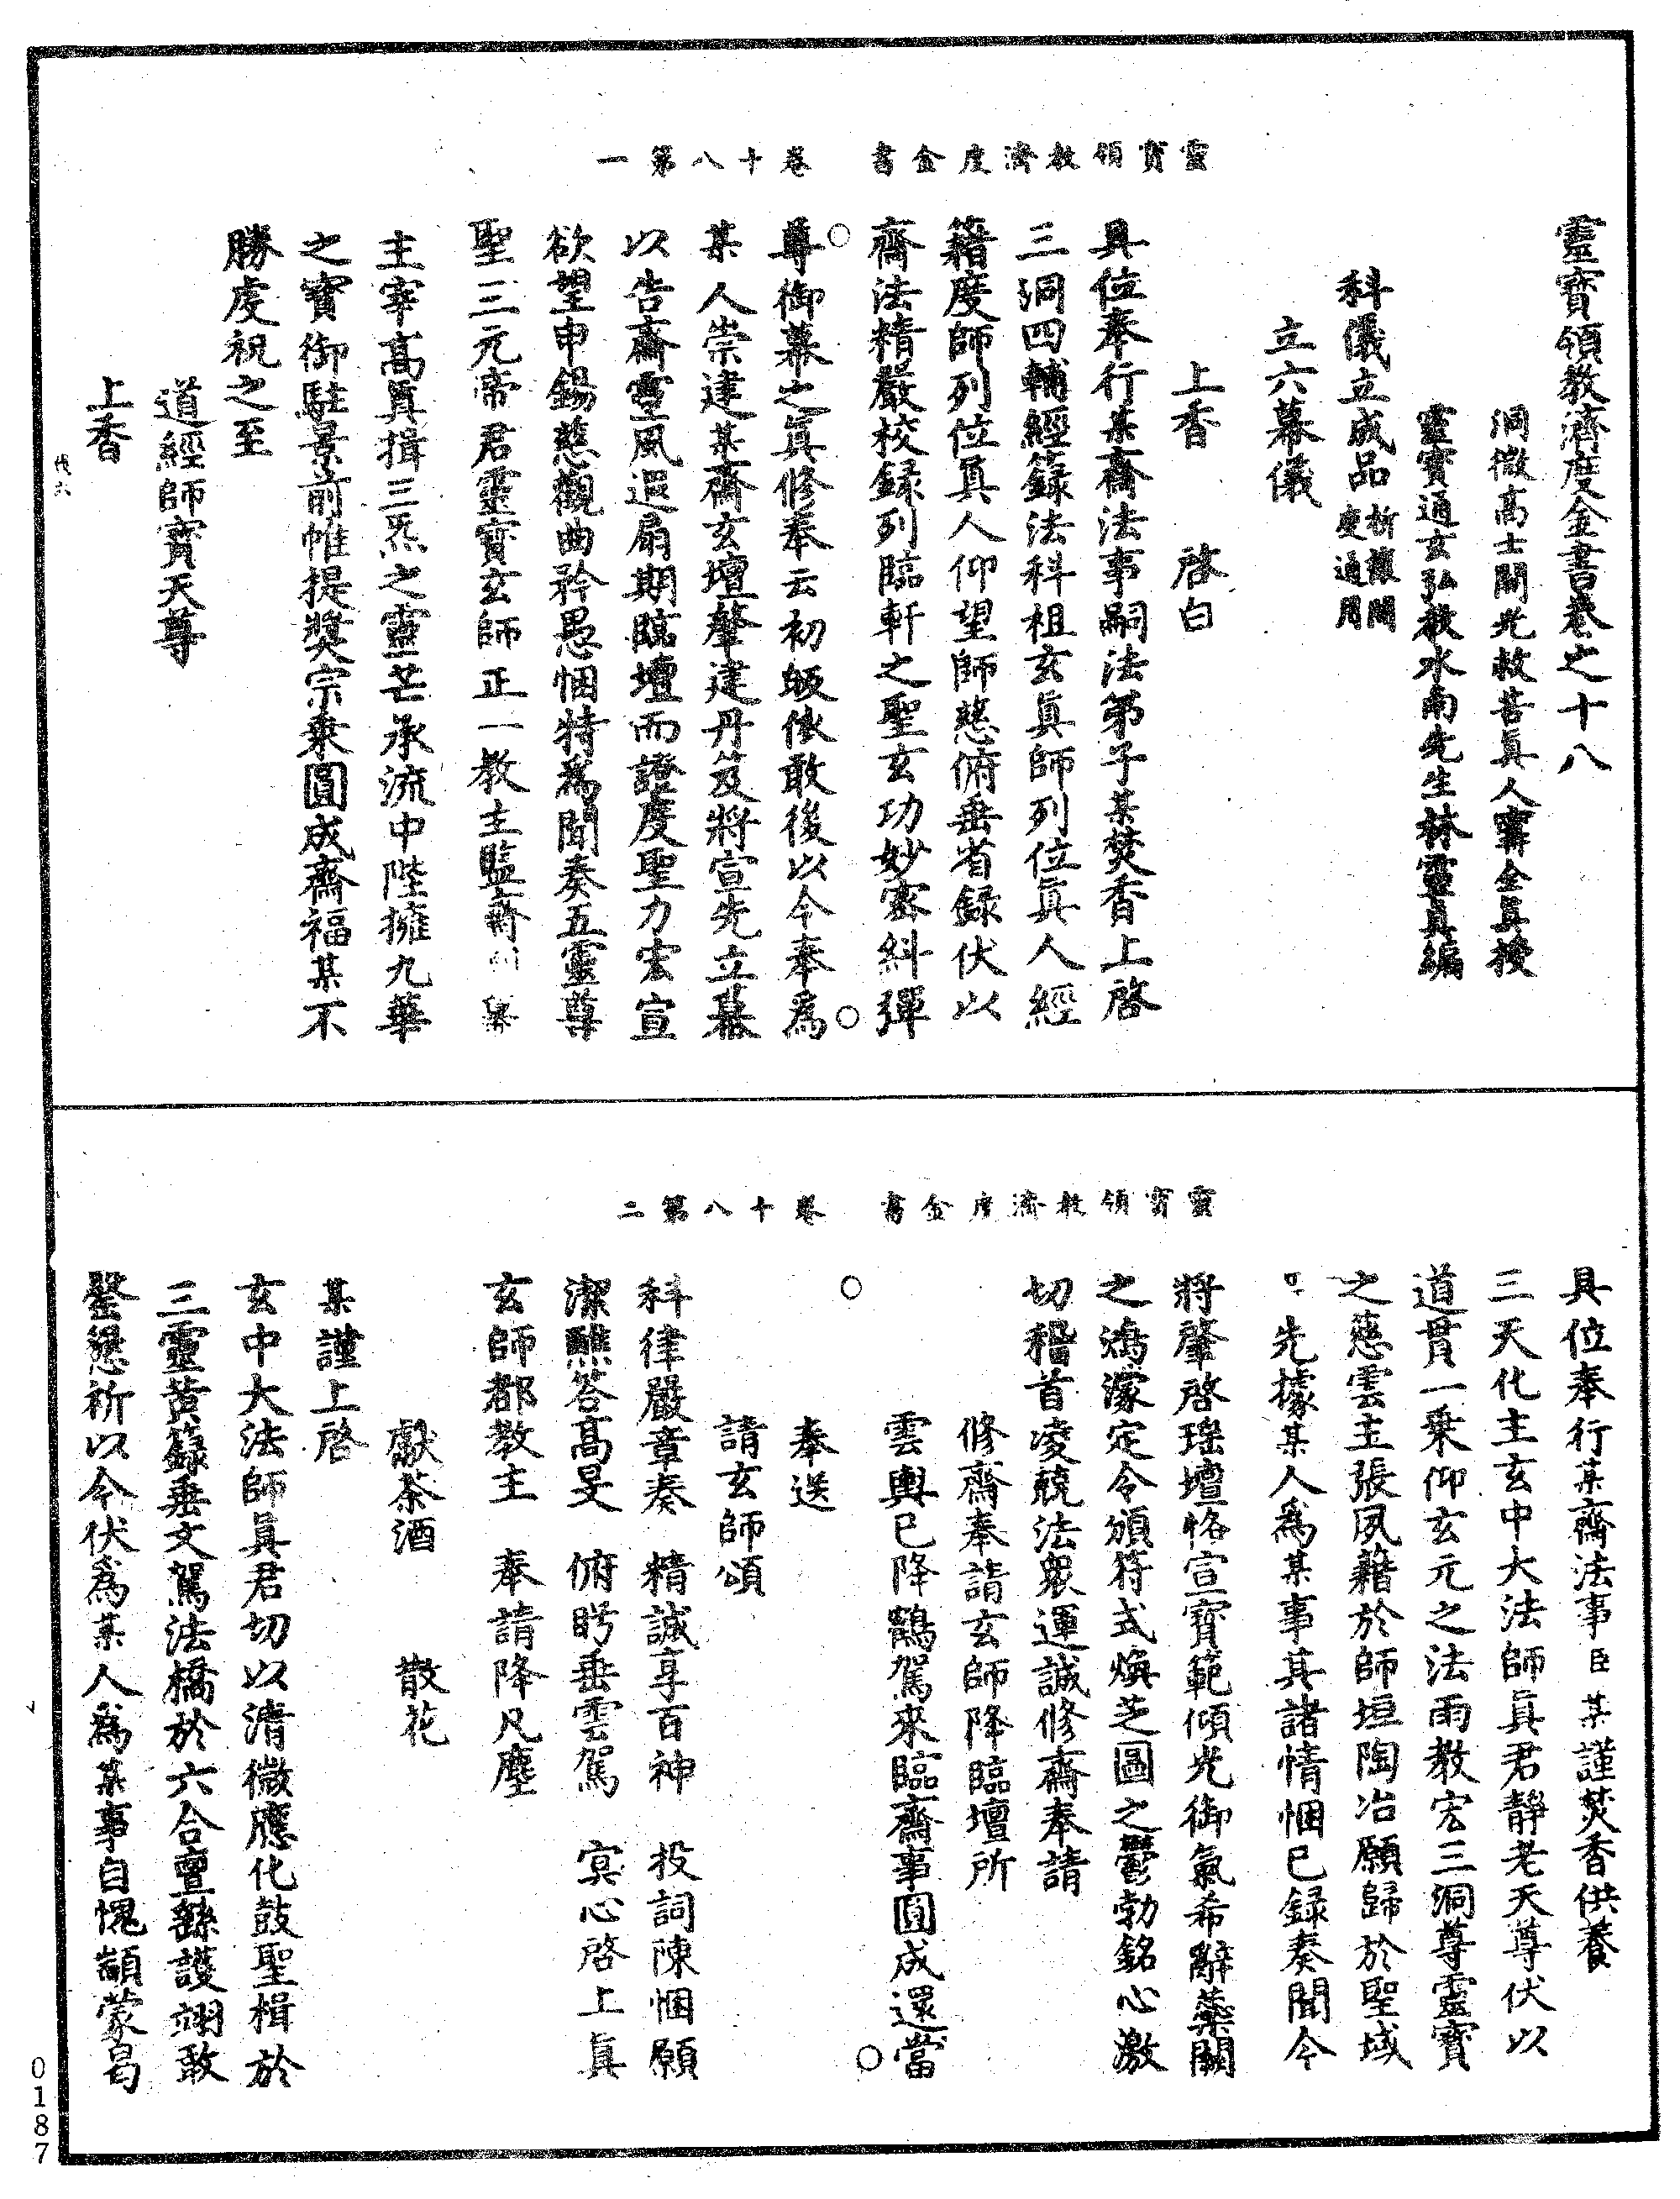 靈寶領教濟度金書 卷十八第一
靈寶領教濟度金書卷之十八
洞微高士開光救苦真人寗全真授
靈寶通玄弘教水南先生林靈真編
科儀立成品 祈禳開度通用
立六幕儀
上香 啓白
具位奉行某齋法事嗣法弟子某焚香上啓
三洞四輔經籙法科祖玄真師列位真人經
籍度師列位真人仰望師慈俯垂省録伏以
齋法精嚴校録列臨軒之聖玄功妙密糾彈
尊御幕之真修奉云初皈依敢後以今奉爲
某人崇建某齋玄壇肇建丹笈將宣先立幕
以告齋靈風遐扇期臨壇而證度聖力宏宣
欲望申錫慈觀曲矜愚悃特爲聞奏五靈尊
聖三元帝君靈寶玄師正一教主監齋
主宰高真揖三炁之靈芒承流中陛擁九華
之寶御駐景前帷提奬宗乗圓成齋福某不
勝虔祝之至
道經師寶天尊
上香
靈寶領教濟度金書 卷十八第二
具位奉行某齋法事臣某謹焚香供養
三天化主玄中大法師真君靜老天尊伏以
道貫一乗仰玄元之法雨教宏三洞尊靈寶
之慈雲主張夙藉於師垣陶冶願歸於聖域
先據某人爲某事其諸情悃已録奏聞今
將肇啓瑶壇恪宣寶範傾光御氣希辭蘂闕
之鴻濛定令頒符式煥芝圖之鬱勃銘心激
切稽首凌兢法衆運誠修齋奉請
修齋奉請玄師降臨壇所
雲輿已降鶴駕來臨齋事圓成還當
奉送
請玄師頌
科律嚴章奏 精誠享百神 投詞陳悃願
潔醮答高旻 俯眄垂雲駕 冥心啓上真
玄師都教主 奉請降凡塵
獻茶酒 散花
某謹上啓
玄中大法師真君切以清微應化鼓聖楫於
三靈黄籙垂文駕法橋於六合亶繇護翊敢
罄懇祈以今伏爲某人爲某事自愧顓蒙曷
0187